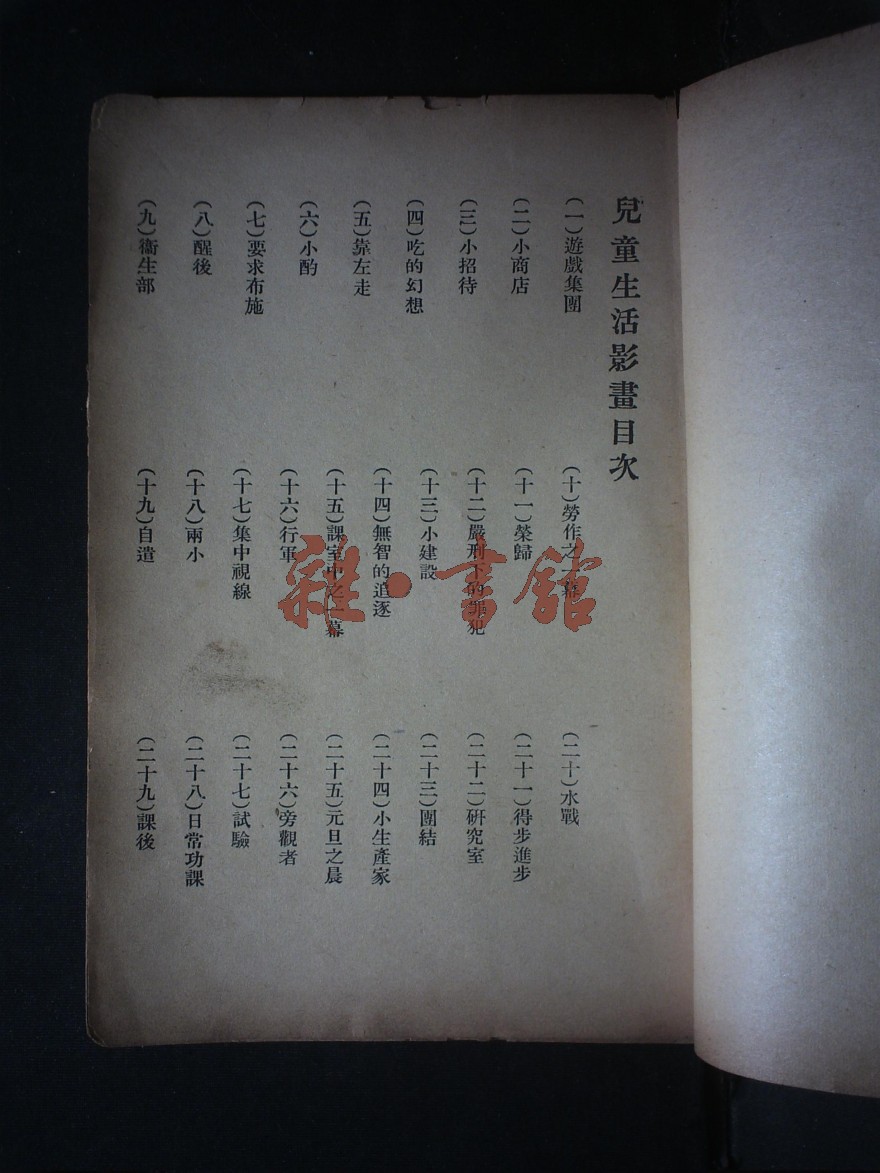 兒童生活影畫目次
(一)遊戲集團
(二)小商店
(三)小招待
(四)吃的幻想
(五)靠左走
(六)小酌
(七)要求布施
(八)醒後
(九)衞生部
(十)勞作之一幕
(十一)榮歸
(十二)嚴刑下的罪犯
(十三)小建設
(十四)無智的追逐
(十五)課室中之一幕
(十六)行軍
(十七)集中視線
(十八)兩小
(十九)自遣
(二十)水戰
(二十一)得步進步
(二十二)研究室
(二十三)團結
(二十四)小生產家
(二十五)元旦之晨
(二十六)旁觀者
(二十七)試驗
(二十八)日常功課
(二十九)課後
雜·書館